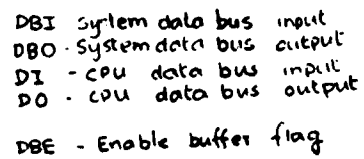 DBI System data bus input
DBO - System data bus output
DI - cpu data bus input
DO - cpu data bus output
DBE - Enable buffer flag